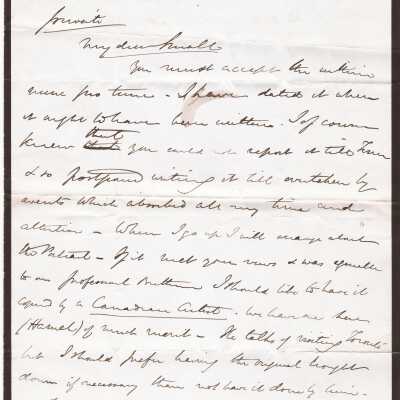 Private
My dear Small
You must accept the within
nunc pro tunc - I have dated it when
it ought to have been written. I of course
knew that you could not report it till
& so postponed writing it till overtaken by
events which absorbed all my time and
attention - When I go up I will arrange about
the Portrait - If it met your views & was agreeable
to our professional Brethren I should like to have it
copied by a Canadian Artist. We have one here
(Hamel) of much merit - He talks of visiting Toronto
but I should prefer having the original brought
down if necessary than not have it done by him -